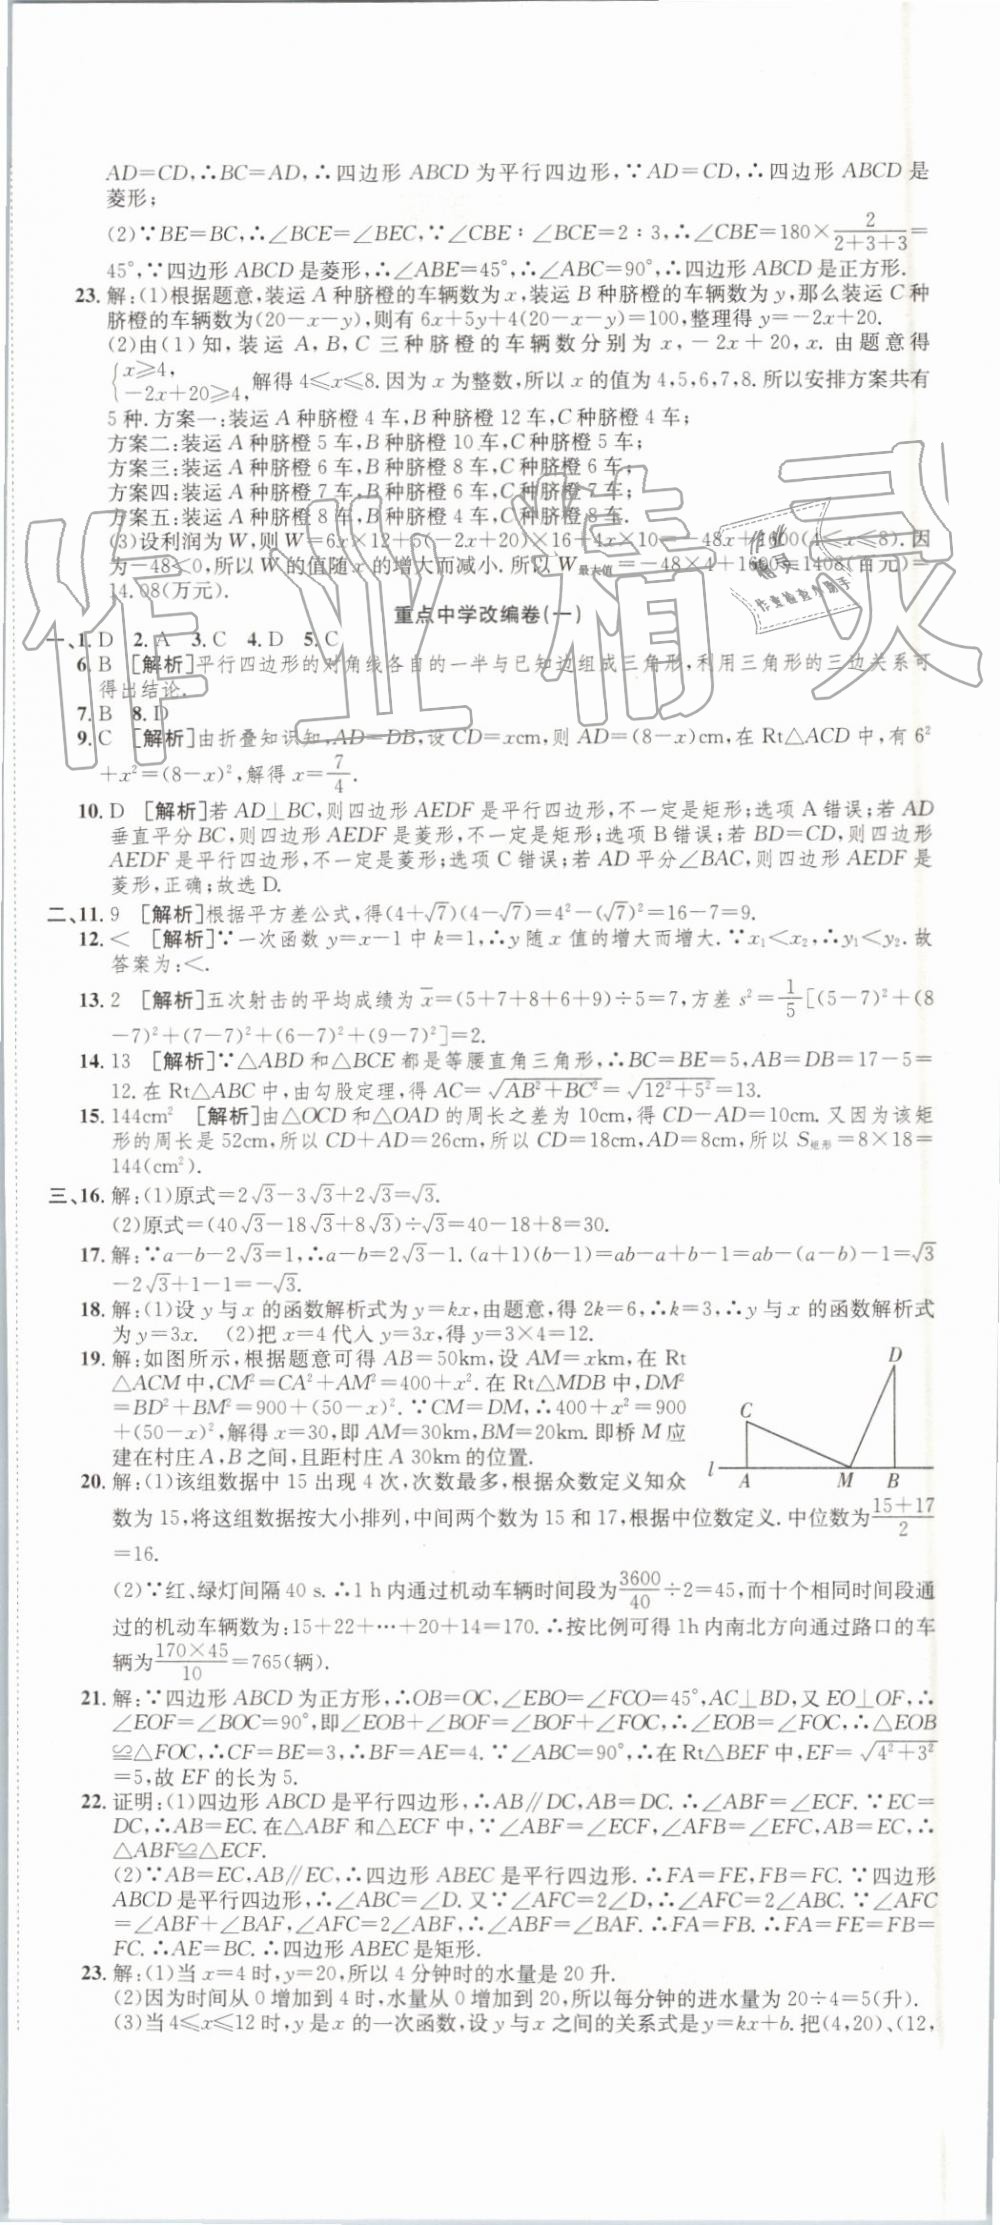 AD=CD,∴BC=AD,∴四边形 ABCD 为平行四边形,∵AD=CD,∴四边形 ABCD 是
菱形;
(2)∵BE=BC,∴∠BCE=∠BEC,∵∠CBE∶∠BCE=2∶3,∴∠CBE=180×2/(2+3+3)=
45°,∵四边形 ABCD 是菱形,∴∠ABE=45°,∴∠ABC=90°,∴四边形 ABCD 是正方形.
23. 解:(1)根据题意,装运 A 种脐橙的车辆数为 x,装运 B 种脐橙的车辆数为 y,那么装运 C 种
脐橙的车辆数为(20-x-y),则有 6x+5y+4(20-x-y)=100,整理得 y=-2x+20.
(2)由(1)知,装运 A,B,C 三种脐橙的车辆数分别为 x,-2x+20,x. 由题意得
{x≥4,
-2x+20≥4, 解得 4≤x≤8. 因为 x 为整数,所以 x 的值为 4,5,6,7,8. 所以安排方案共有
5 种. 方案一:装运 A 种脐橙 4 车,B 种脐橙 12 车,C 种脐橙 4 车;
方案二:装运 A 种脐橙 5 车,B 种脐橙 10 车,C 种脐橙 5 车;
方案三:装运 A 种脐橙 6 车,B 种脐橙 8 车,C 种脐橙 6 车;
方案四:装运 A 种脐橙 7 车,B 种脐橙 6 车,C 种脐橙 7 车;
方案五:装运 A 种脐橙 8 车,B 种脐橙 4 车,C 种脐橙 8 车.
(3)设利润为 W,则 W=6x×12+5(-2x+20)×16+4x×10=-48x+1600(4≤x≤8). 因
为-48<0,所以 W 的值随 x 的增大而减小. 所以 W最大值=-48×4+1600=1408(百元)=
14.08(万元).
重点中学改编卷(一)
一、1. D 2. A 3. C 4. D 5. C
6. B [解析]平行四边形的对角线各自的一半与已知边组成三角形,利用三角形的三边关系可
得出结论.
7. B 8. D
9. C [解析]由折叠知识知,AD=DB,设 CD=xcm,则 AD=(8-x)cm,在 Rt△ACD 中,有 6²
+x²=(8-x)²,解得 x=7/4.
10. D [解析]若 AD⊥BC,则四边形 AEDF 是平行四边形,不一定是矩形;选项 A 错误;若 AD
垂直平分 BC,则四边形 AEDF 是菱形,不一定是矩形;选项 B 错误;若 BD=CD,则四边形
AEDF 是平行四边形,不一定是菱形;选项 C 错误;若 AD 平分∠BAC,则四边形 AEDF 是
菱形,正确;故选 D.
二、11. 9 [解析]根据平方差公式,得(4+√7)(4-√7)=4²-(√7)²=16-7=9.
12. < [解析]∵一次函数 y=x-1 中 k=1,∴y 随 x 值的增大而增大. ∵x₁<x₂,∴y₁<y₂. 故
答案为:<.
13. 2 [解析]五次射击的平均成绩为 x̄=(5+7+8+6+9)÷5=7,方差 s²=1/5[(5-7)²+(8
-7)²+(7-7)²+(6-7)²+(9-7)²]=2.
14. 13 [解析]∵△ABD 和△BCE 都是等腰直角三角形,∴BC=BE=5,AB=DB=17-5=
12. 在 Rt△ABC 中,由勾股定理,得 AC=√(AB²+BC²)=√(12²+5²)=13.
15. 144cm² [解析]由△OCD 和△OAD 的周长之差为 10cm,得 CD-AD=10cm. 又因为该矩
形的周长是 52cm,所以 CD+AD=26cm,所以 CD=18cm,AD=8cm,所以 S矩形=8×18=
144(cm²).
三、16. 解:(1)原式=2√3-3√3+2√3=√3.
(2)原式=(40√3-18√3+8√3)÷√3=40-18+8=30.
17. 解:∵a-b-2√3=1,∴a-b=2√3-1. (a+1)(b-1)=ab-a+b-1=ab-(a-b)-1=√3
-2√3+1-1=-√3.
18. 解:(1)设 y 与 x 的函数解析式为 y=kx,由题意,得 2k=6,∴k=3,∴y 与 x 的函数解析式
为 y=3x. (2)把 x=4 代入 y=3x,得 y=3×4=12.
19. 解:如图所示,根据题意可得 AB=50km,设 AM=xkm,在 Rt
△ACM 中,CM²=CA²+AM²=400+x². 在 Rt△MDB 中,DM²
=BD²+BM²=900+(50-x)². ∵CM=DM,∴400+x²=900
+(50-x)²,解得 x=30,即 AM=30km,BM=20km. 即桥 M 应
建在村庄 A,B 之间,且距村庄 A 30km 的位置.
D
C
l
A M B
20. 解:(1)该组数据中 15 出现 4 次,次数最多,根据众数定义知众
数为 15,将这组数据按大小排列,中间两个数为 15 和 17,根据中位数定义. 中位数为(15+17)/2
=16.
(2)∵红、绿灯间隔 40 s. ∴1 h 内通过机动车辆时间段为3600/40÷2=45,而十个相同时间段通
过的机动车辆数为:15+22+…+20+14=170. ∴按比例可得 1h 内南北方向通过路口的车
辆为(170×45)/10=765(辆).
21. 解:∵四边形 ABCD 为正方形,∴OB=OC,∠EBO=∠FCO=45°,AC⊥BD,又 EO⊥OF,∴
∠EOF=∠BOC=90°,即∠EOB+∠BOF=∠BOF+∠FOC,∴∠EOB=∠FOC,∴△EOB
≌△FOC,∴CF=BE=3,∴BF=AE=4. ∵∠ABC=90°,∴在 Rt△BEF 中,EF=√(4²+3²)
=5,故 EF 的长为 5.
22. 证明:(1)四边形 ABCD 是平行四边形,∴AB∥DC,AB=DC. ∴∠ABF=∠ECF. ∵EC=
DC,∴AB=EC. 在△ABF 和△ECF 中,∵∠ABF=∠ECF,∠AFB=∠EFC,AB=EC,∴
△ABF≌△ECF.
(2)∵AB=EC,AB∥EC,∴四边形 ABEC 是平行四边形. ∴FA=FE,FB=FC. ∵四边形
ABCD 是平行四边形,∴∠ABC=∠D. 又∵∠AFC=2∠D,∴∠AFC=2∠ABC. ∵∠AFC
=∠ABF+∠BAF,∠AFC=2∠ABF,∴∠ABF=∠BAF. ∴FA=FB. ∴FA=FE=FB=
FC. ∴AE=BC. ∴四边形 ABEC 是矩形.
23. 解:(1)当 x=4 时,y=20,所以 4 分钟时的水量是 20 升.
(2)因为时间从 0 增加到 4 时,水量从 0 增加到 20,所以每分钟的进水量为 20÷4=5(升).
(3)当 4≤x≤12 时,y 是 x 的一次函数,设 y 与 x 之间的关系式是 y=kx+b. 把(4,20)、(12,
作业精灵
作业精灵
作业检查小助手